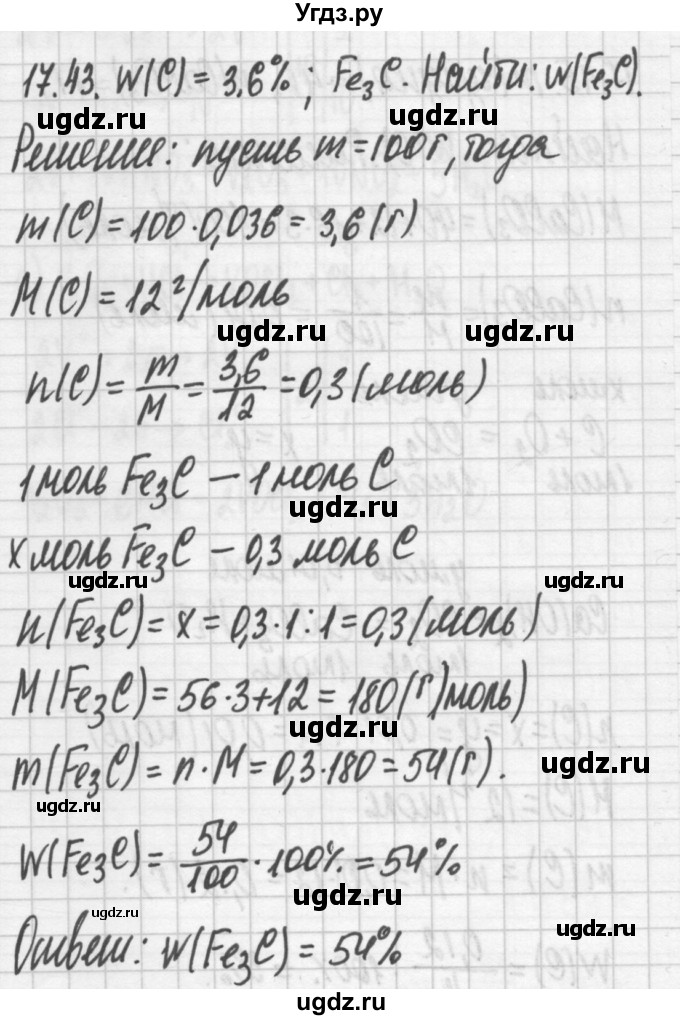 Угдз.ру
17.43. W(C) = 3,6% ; Fe₃C. Найти: W(Fe₃C).
ugdz.ru ugdz.ru
Решение: пусть m = 100г, тогда
m(C) = 100 · 0,036 = 3,6 (г)
M(C) = 12 г/моль
ugdz.ru ugdz.ru
n(C) = m/M = 3,6/12 = 0,3 (моль)
1 моль Fe₃C — 1 моль C
ugdz.ru
x моль Fe₃C — 0,3 моль C
ugdz.ru ugdz.ru
n(Fe₃C) = x = 0,3 · 1 : 1 = 0,3 (моль)
M(Fe₃C) = 56 · 3 + 12 = 180 (г/моль)
ugdz.ru
m(Fe₃C) = n · M = 0,3 · 180 = 54 (г).
ugdz.ru
ugdz.ru
W(Fe₃C) = 54/100 · 100% = 54%
ugdz.ru
ugdz.ru
ugdz.ru
Ответ: W(Fe₃C) = 54%
ugdz.ru